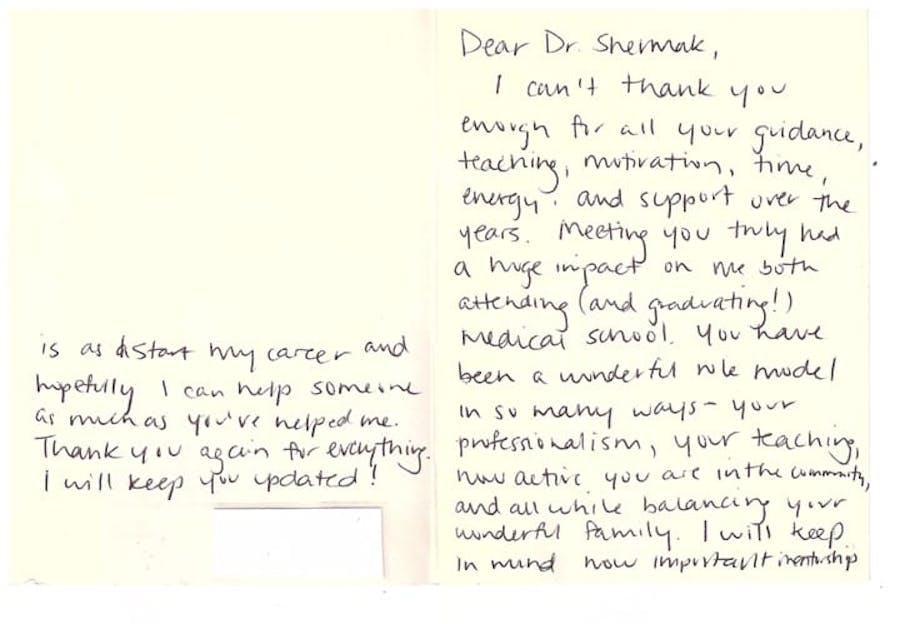 Dear Dr. Shermak,
I can't thank you
enough for all your guidance,
teaching, motivation, time,
energy, and support over the
years. Meeting you truly had
a huge impact on me both
attending (and graduating!)
Medical school. You have
been a wonderful role model
in so many ways - your
professionalism, your teaching,
how active you are in the community,
and all while balancing your
wonderful family. I will keep
in mind how important mentorship
is as I start my career and
hopefully I can help someone
as much as you've helped me.
Thank you again for everything.
I will keep you updated!